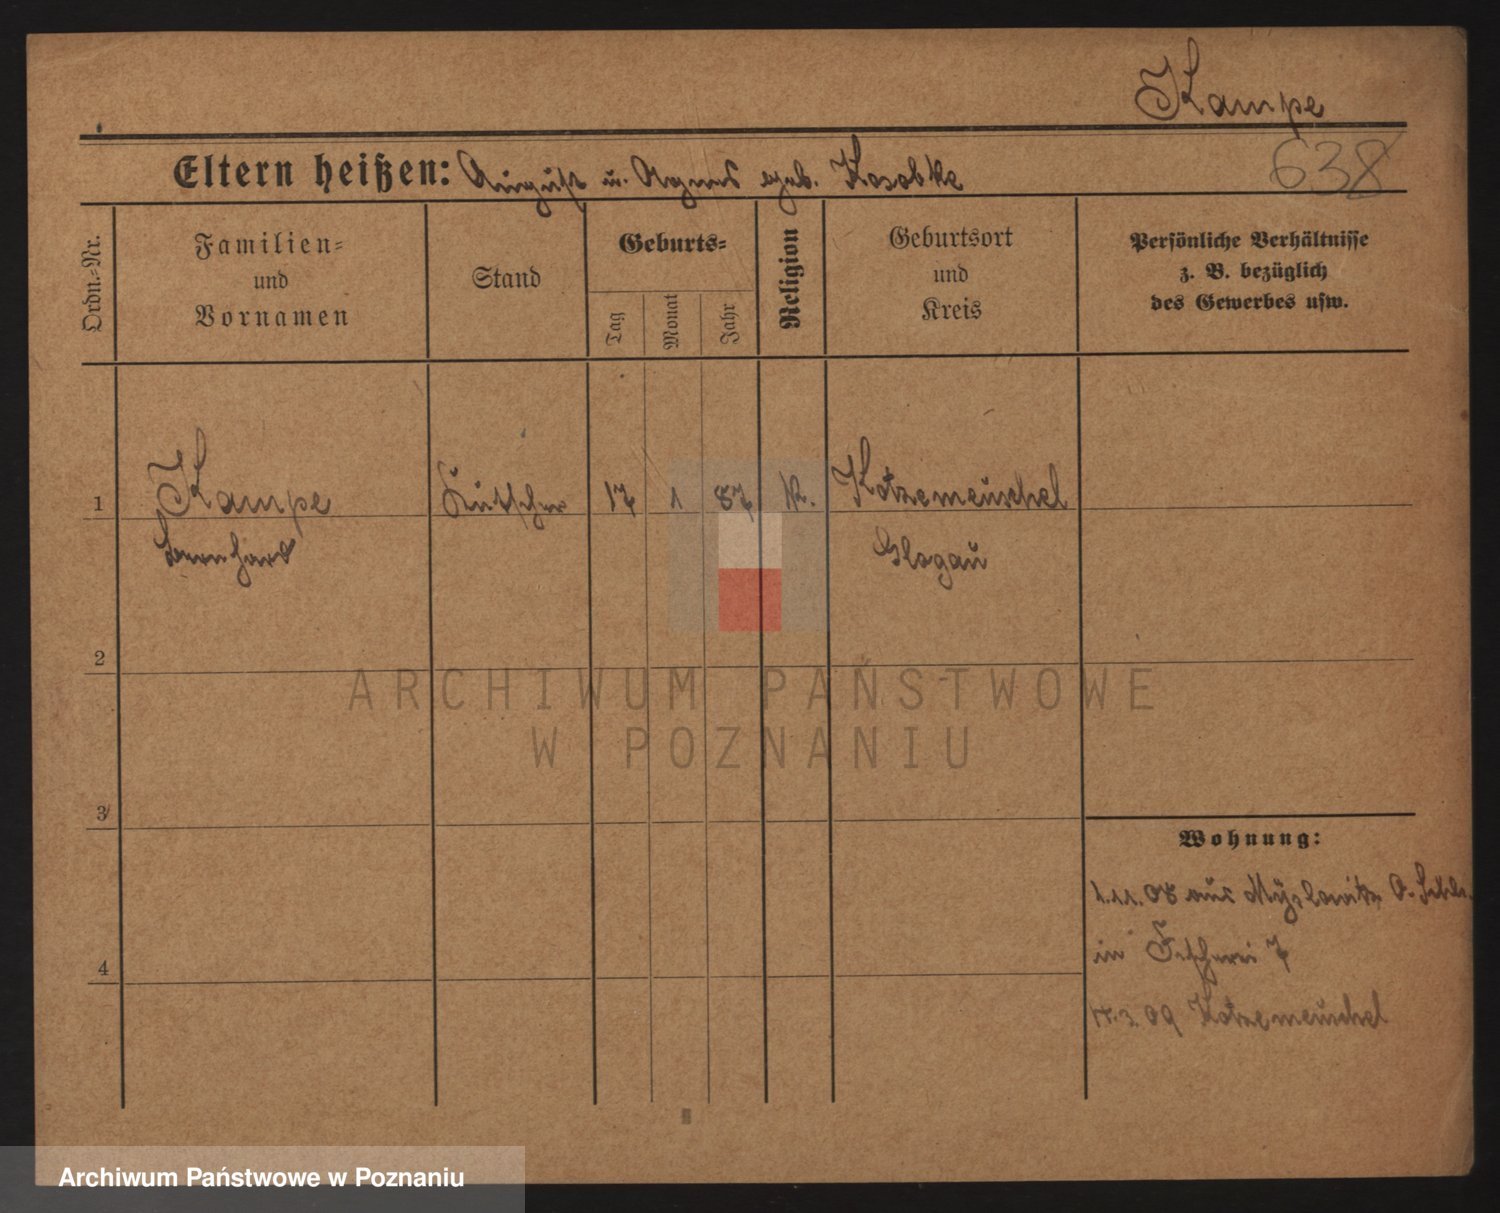 Kampe
638
Eltern heißen: August u. Agnes geb. Kosobke
Ordn.-Nr.
Familien-
und
Vornamen
Stand
Geburts-
Tag
Monat
Jahr
Religion
Geburtsort
und
Kreis
Persönliche Verhältnisse
z. B. bezüglich
des Gewerbes usw.
1
Kampe
Bernhard
Kutscher
17
1
87
K.
Kotzemeuschel
Glogau
2
3
4
Wohnung:
1.11.08 aus Myslowitz O. Schls.
in Fischerei 7
3.09 Kotzemeuschel
ARCHIWUM PAŃSTWOWE
W POZNANIU
Archiwum Państwowe w Poznaniu